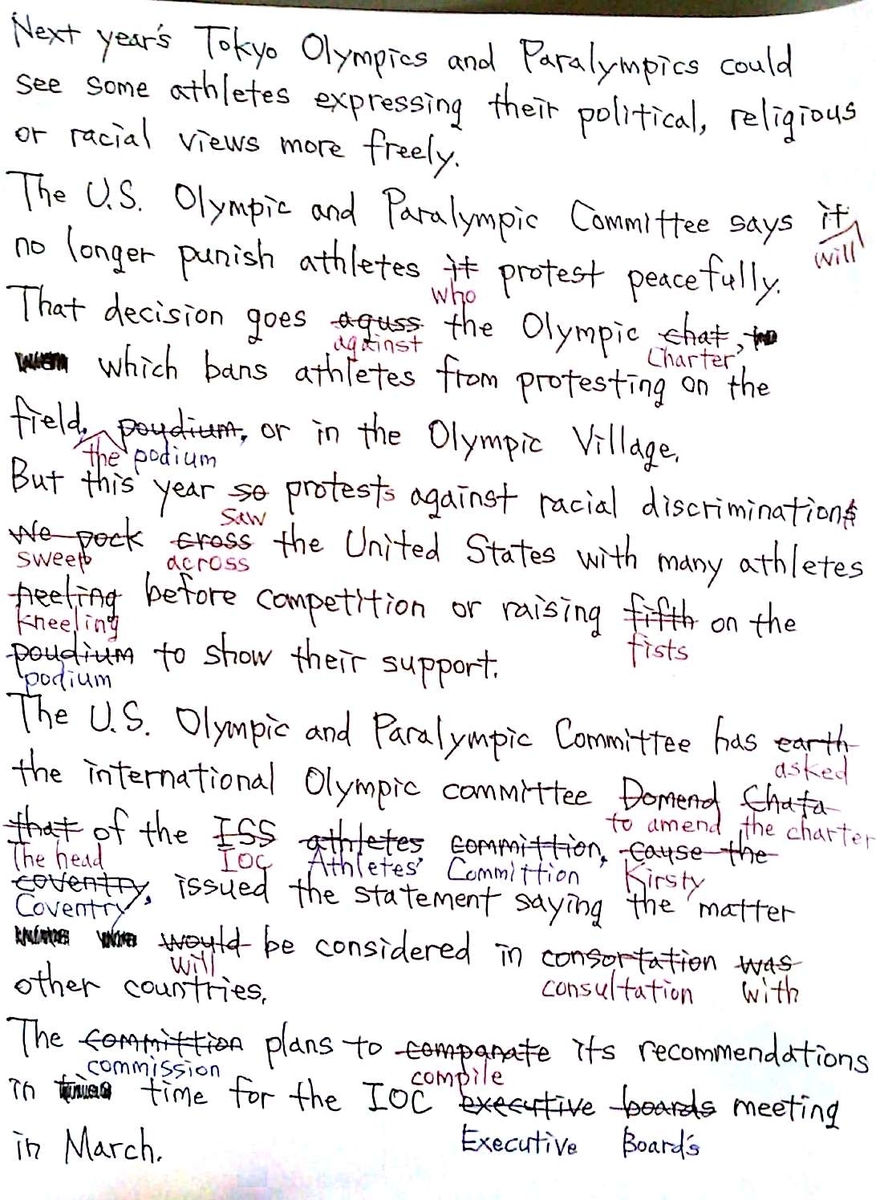 Next year's Tokyo Olympics and Paralympics could
see some athletes expressing their political, religious
or racial views more freely.
The U.S. Olympic and Paralympic Committee says it
will
no longer punish athletes it protest peacefully.
who
That decision goes aguss the Olympic chat, to
against Charter,
which bans athletes from protesting on the
field, poudium, or in the Olympic Village.
the podium
But this year so protests against racial discriminations
saw
We pock cross the United States with many athletes
sweep across
heeling before competition or raising fifth on the
kneeling fists
poudium to show their support.
podium
The U.S. Olympic and Paralympic Committee has earth
asked
the international Olympic committee Domend Chata
to amend the charter
that of the ISS athletes committion, cause the
The head IOC Athletes' Committion Kirsty
coventry, issued the statement saying the matter
Coventry,
would be considered in consortation was
will consultation with
other countries.
The committion plans to companate its recommendations
commission compile
in time for the IOC executive boards meeting
Executive Board's
in March.